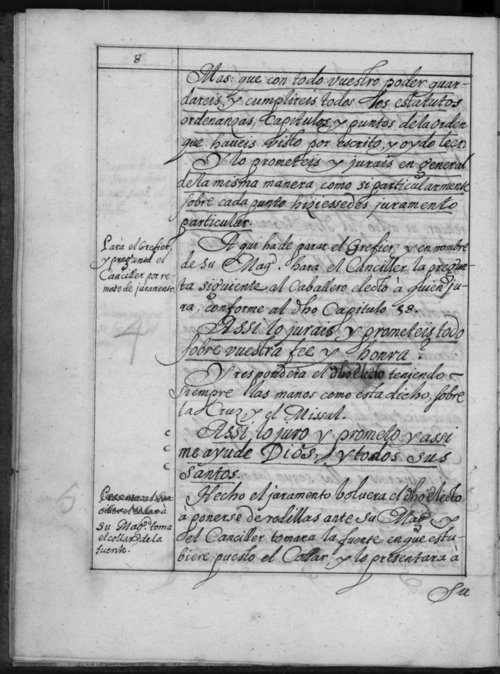 8
Mas que con todo vuestro poder guar-
dareis, y cumplireis todos los estatutos
ordenanzas, Capitulos, y puntos de la orden
que haveis visto por escrito, y oydo leer.
Y lo prometeis y jurais en general
de la misma manera, como si particularmente
sobre cada punto hiziessedes juramento
particular.
Para el Grefier,
y pregunta el
Canciller por re-
mate de juramento.
Aqui ha de parar el Grefier, y en nombre
de su Magd. hara el Canciller la pregun-
ta siguiente al Caballero electo a quien ju-
ra, conforme al dho Capitulo 58.
Assi lo jurais, y prometeis todo
sobre vuestra fee y honra.
Y respondera el dho electo teniendo
siempre las manos como esta dicho, sobre
la Cruz, y el Missal.
Assi lo juro y prometo y assi
me ayude Dios, y todos sus
santos.
su Magd. toma
el collar de la
fuente.
Hecho el juramento bolvera el dho electo
à ponerse de rodillas ante su Magd. y
el Canciller tomara la fuente en que estu-
biere puesto el Collar, y lo presentarà à
Su
4
5